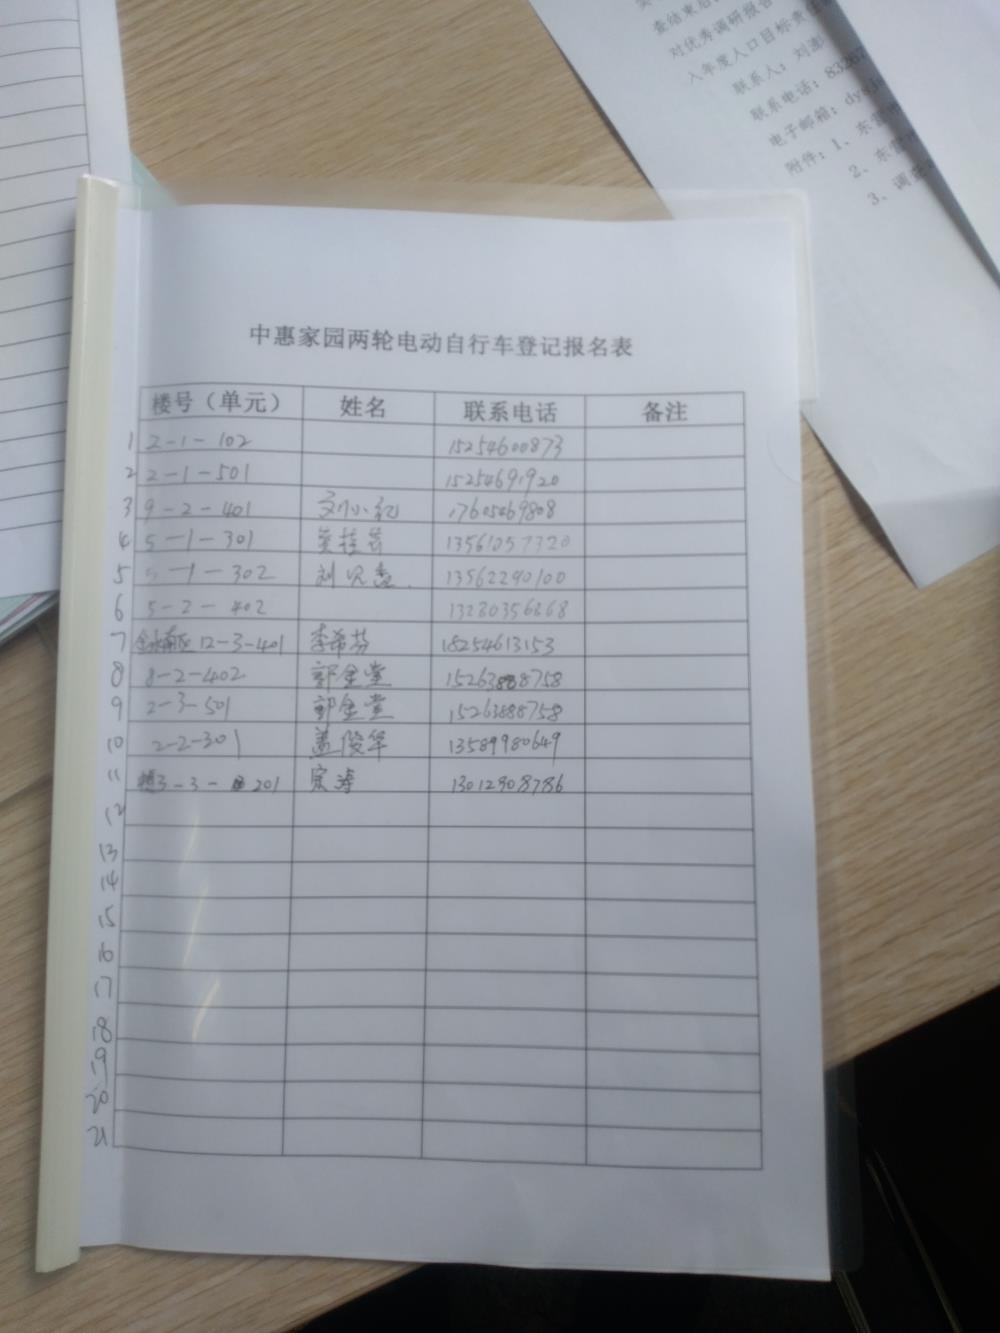 查结束后
对优秀调研报告
入年度人口目标责任
联系人：刘澎
联系电话：83267
电子邮箱：dys
附件：1、东营
2、东营
3、调
中惠家园两轮电动自行车登记报名表
楼号（单元） 姓名 联系电话 备注
1 2-1-102 15254600873
2 2-1-501 15254691920
3 9-2-401 刘小 17605469808
4 5-1-301 13561057320
5 5-1-302 刘 13562290100
6 5-2-402 13280356868
7 12-3-401 李希芬 18254613153
8 8-2-402 郭金堂 15263888758
9 2-3-501 郭金堂 15263888758
10 2-2-301 盖俊华 13589980649
11 3-3-201 宋涛 13012908786
12
13
14
15
16
17
18
19
20
21